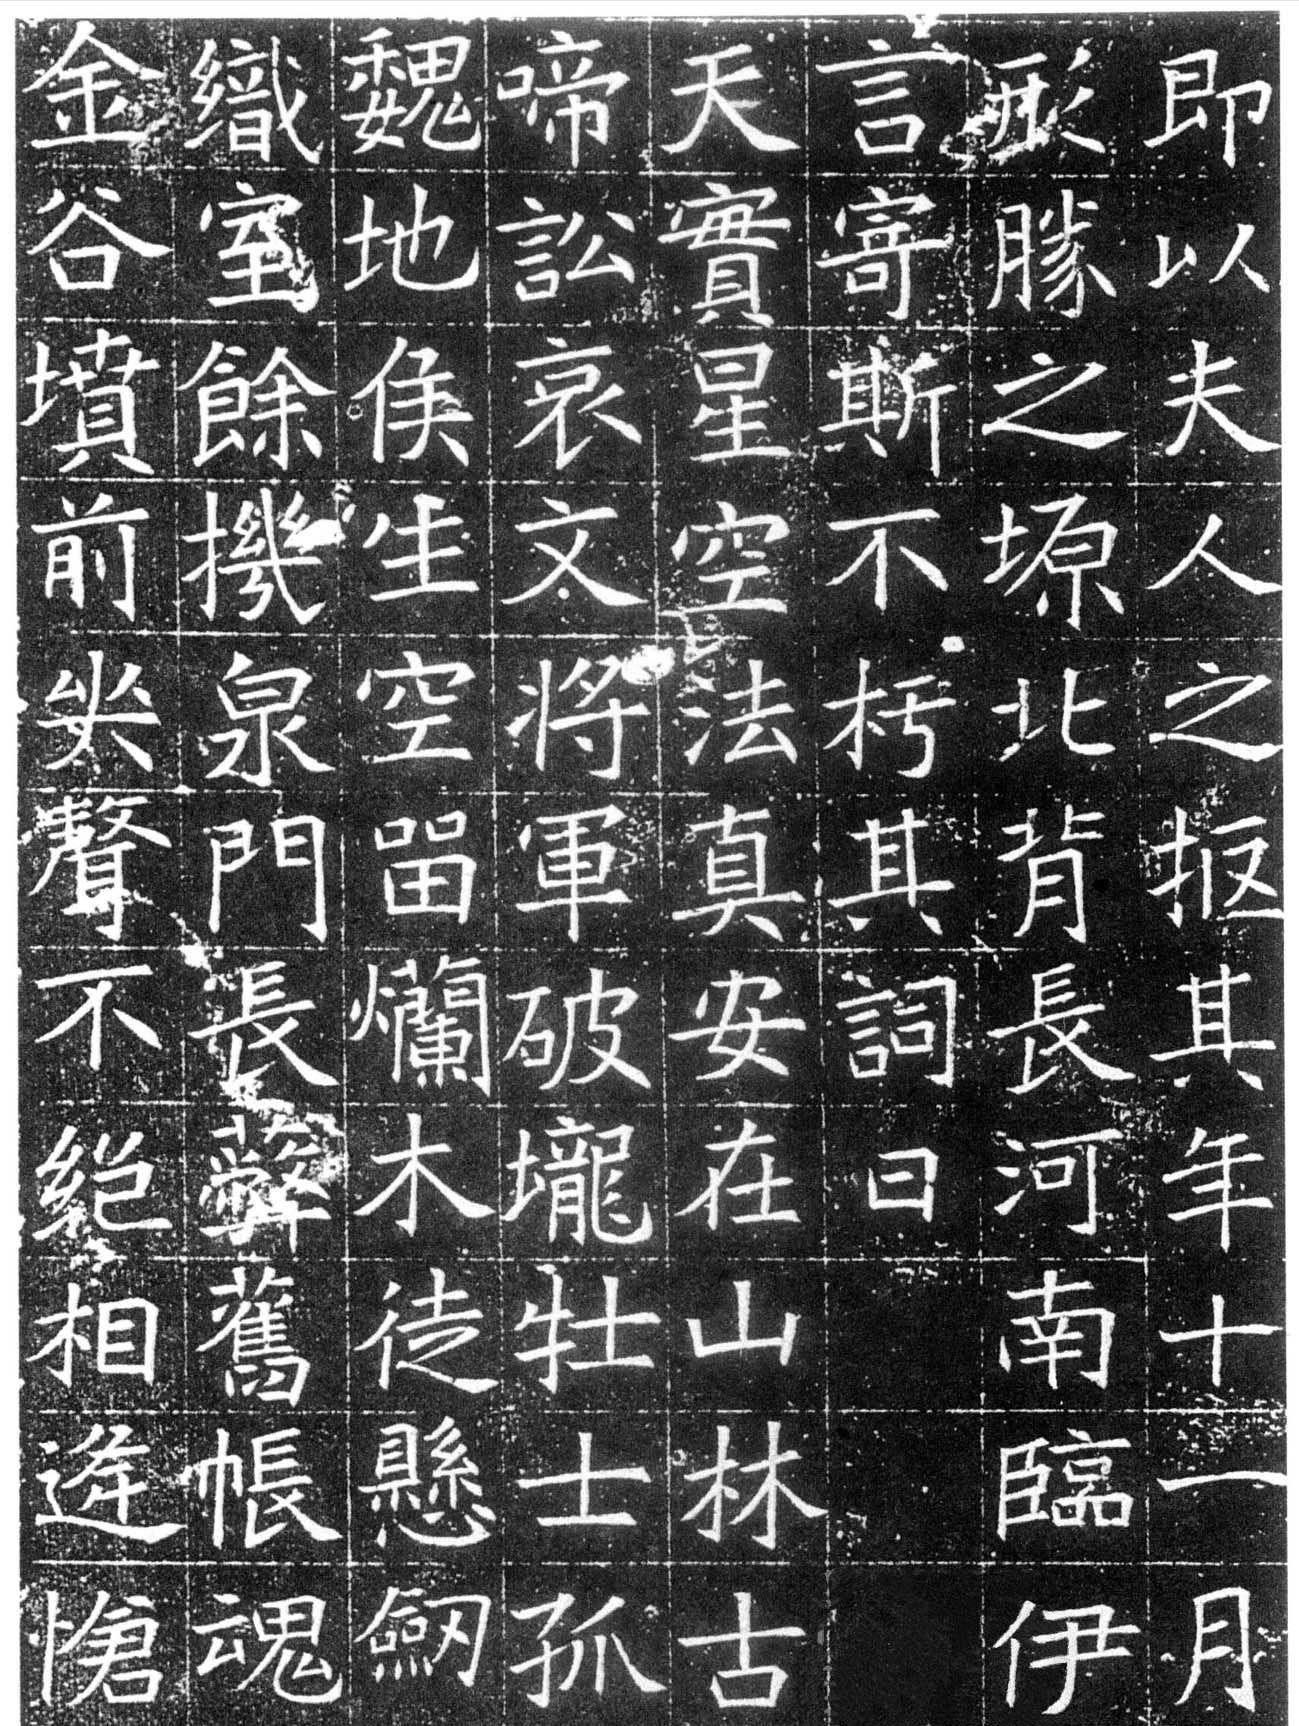 即以夫人之柩其年十一月
形勝之塬北背長河南臨伊
言寄斯不朽其詞曰
天實星空法真安在山林古
啼訟哀文將軍破壠牡士孤
魏地侯生空留爛木徒懸劒
織室餘機泉門長薜舊帳魂
金谷墳前哭聲不絕相逢愴